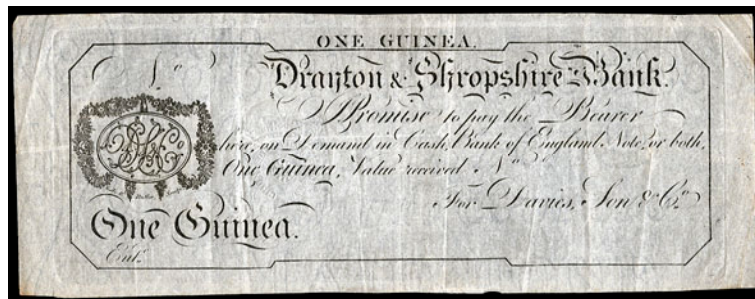 ONE GUINEA.
No
Drayton & Shropshire Bank.
I Promise to pay the Bearer
here, on Demand in Cash, Bank of England Note, or both,
One Guinea, Value received No
For Davies, Son & Co.
One Guinea.
Ent.